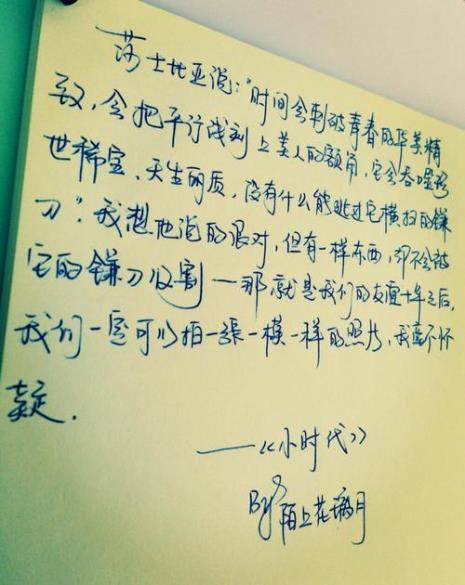 莎士比亚说："时间会刺破青春的华美精
致，会把平行线刻上美人的额角，它会吞噬稀
世稀宝、天生丽质，没有什么能逃过它横扫的镰
刀"。我想他说的很对，但有一样东西，却不会被
它的镰刀收割——那就是我们的友谊十年之后，
我们一定可以拍一張一模一样的照片，我毫不怀
疑．
——《小时代》
By 陌上花满月